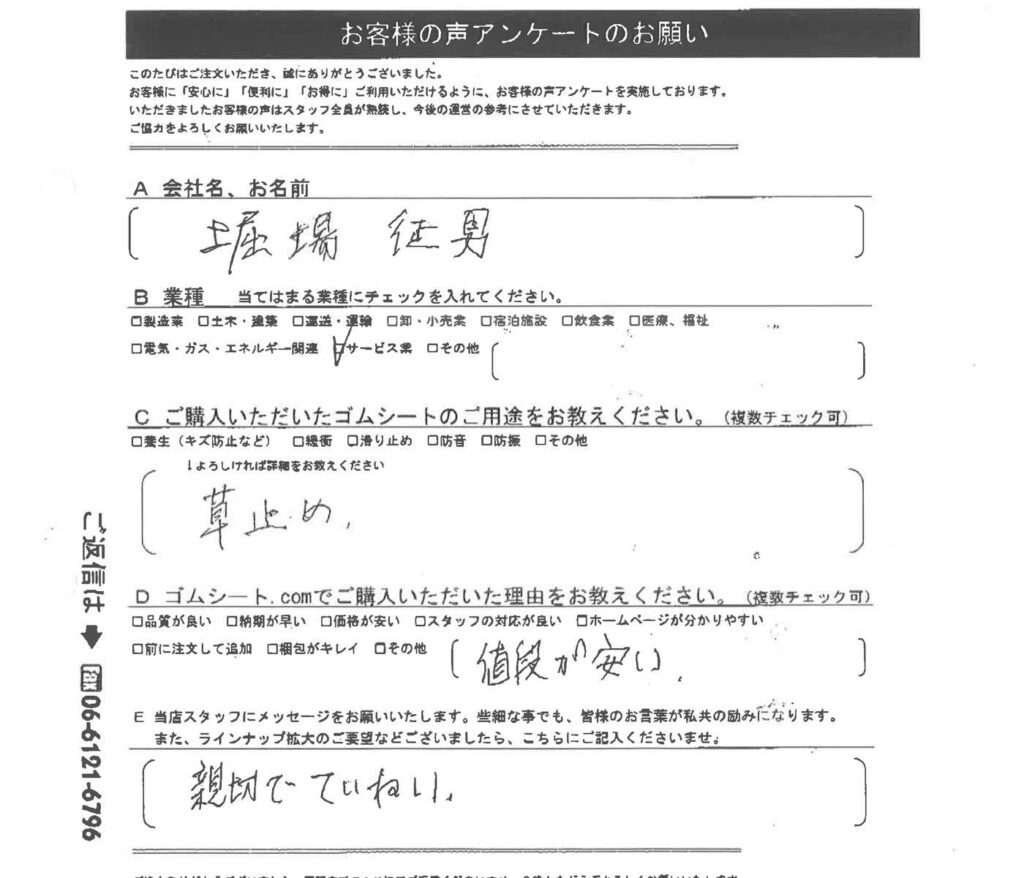 お客様の声アンケートのお願い
このたびはご注文いただき、誠にありがとうございました。
お客様に「安心に」「便利に」「お得に」ご利用いただけるように、お客様の声アンケートを実施しております。
いただきましたお客様の声はスタッフ全員が熟読し、今後の運営の参考にさせていただきます。
ご協力をよろしくお願いいたします。
A 会社名、お名前
堀場 征男
B 業種 当てはまる業種にチェックを入れてください。
□製造業 □土木・建築 □運送・運輸 □卸・小売業 □宿泊施設 □飲食業 □医療、福祉
□電気・ガス・エネルギー関連 ☑サービス業 □その他
C ご購入いただいたゴムシートのご用途をお教えください。(複数チェック可)
□養生(キズ防止など) □緩衝 □滑り止め □防音 □防振 □その他
↓よろしければ詳細をお教えください
草止め.
D ゴムシート.comでご購入いただいた理由をお教えください。(複数チェック可)
□品質が良い □納期が早い □価格が安い □スタッフの対応が良い □ホームページが分かりやすい
□前に注文して追加 □梱包がキレイ □その他 値段が安い.
E 当店スタッフにメッセージをお願いいたします。些細な事でも、皆様のお言葉が私共の励みになります。
また、ラインナップ拡大のご要望などございましたら、こちらにご記入くださいませ。
親切でていねい.
ご返信は➡FAX06-6121-6796